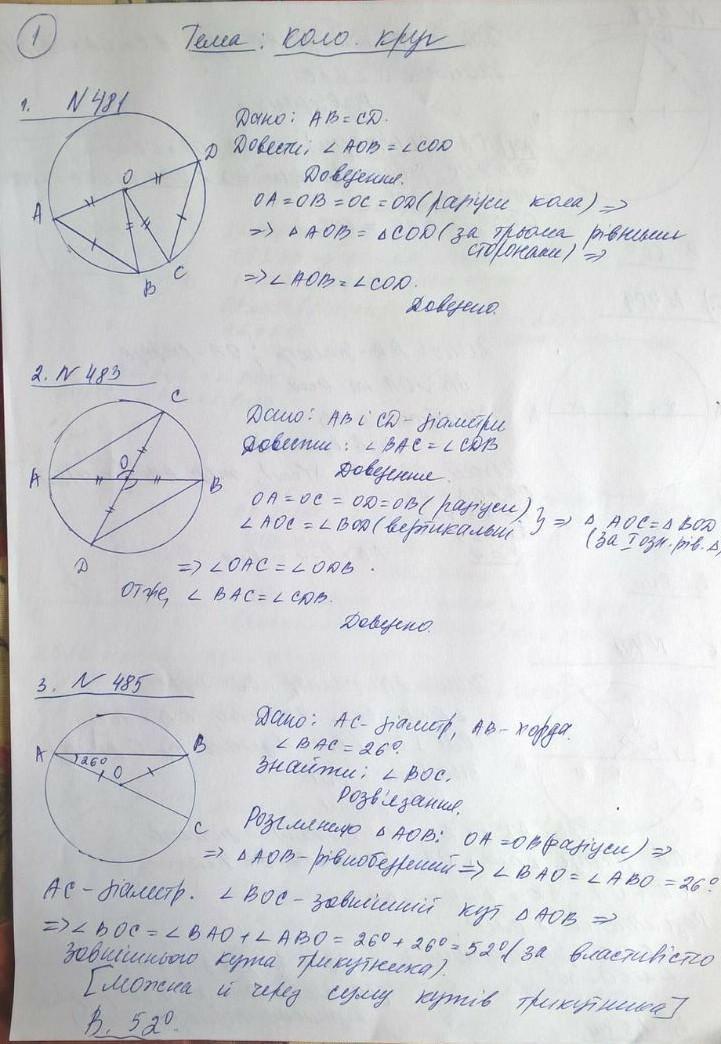 1
Тема: коло. круг
1. N 481
Дано: AB=CD.
Довести: ∠AOB=∠COD
Доведення.
OA=OB=OC=OD (радіуси кола) =>
=> △AOB=△COD (за трьома рівними
сторонами) =>
=> ∠AOB=∠COD.
Доведено.
A
O
D
B
C
2. N 483
Дано: AB і CD - діаметри
Довести: ∠BAC=∠CDB
Доведення.
OA=OC=OD=OB (радіуси)
∠AOC=∠BOD (вертикальні } => △AOC=△BOD
(за I озн. рів. △)
=> ∠OAC=∠ODB.
Отже, ∠BAC=∠CDB.
Доведено.
C
A
O
B
D
3. N 485
Дано: AC - діаметр, AB - хорда.
∠BAC=26°.
Знайти: ∠BOC.
Розв'язання.
Розглянемо △AOB: OA=OB (радіуси) =>
=> △AOB - рівнобедрений => ∠BAO=∠ABO=26°
AC - діаметр. ∠BOC - зовнішній кут △AOB =>
=> ∠BOC=∠BAO+∠ABO=26°+26°=52° (за властивістю
зовнішнього кута трикутника).
[можна й через суму кутів трикутника]
В. 52°.
A
26°
O
B
C